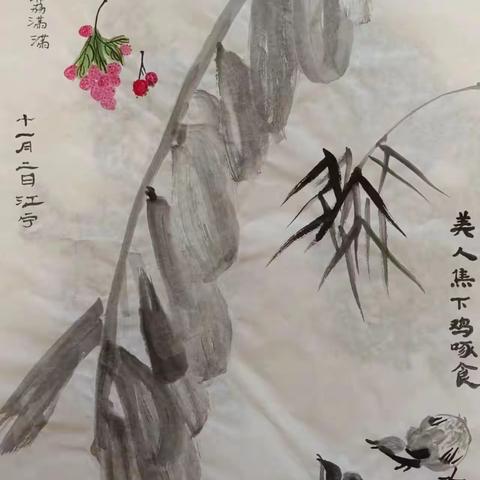 美人焦下鸡啄食
荔满满
十一月二日江宁